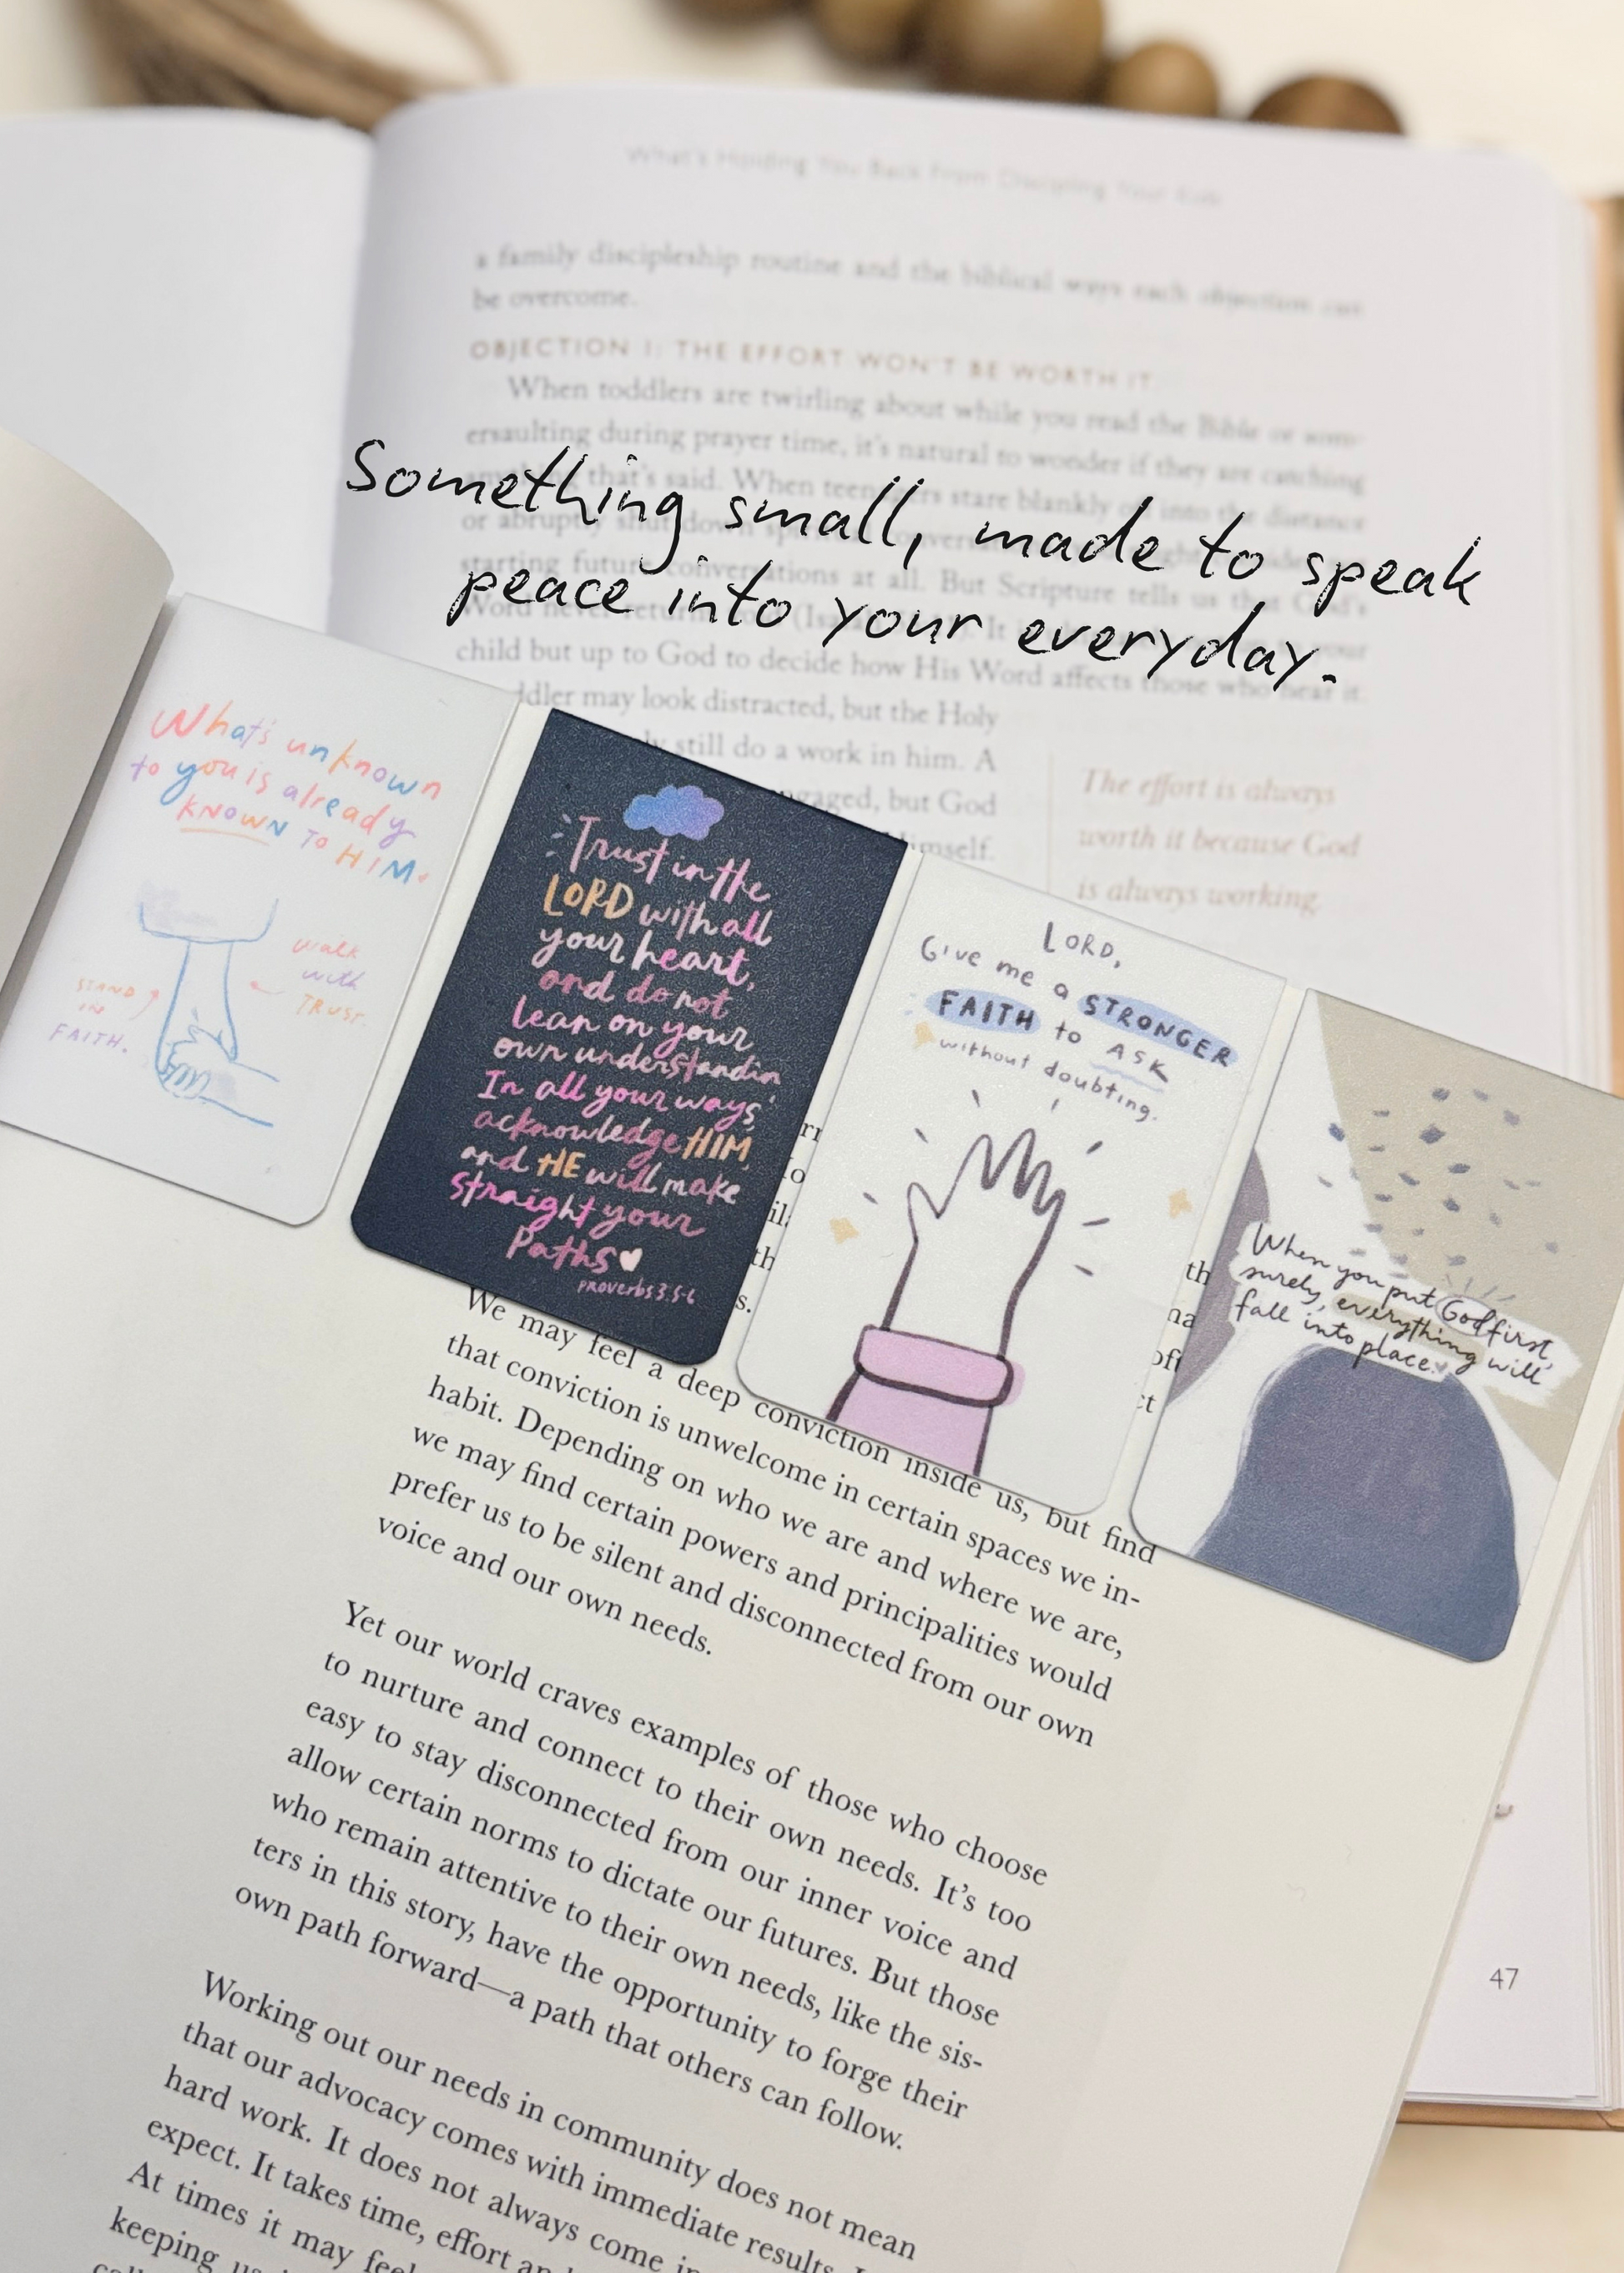 What's Holding You Back From Discipling Your Kids
a family discipleship routine and the biblical ways each objection can
be overcome.
OBJECTION 1: THE EFFORT WON'T BE WORTH IT.
When toddlers are twirling about while you read the Bible or som-
ersaulting during prayer time, it's natural to wonder if they are catching
anything that's said. When teenagers stare blankly off into the distance
or abruptly shut down
starting future conversations at all. But Scripture tells us that God's
Word never
child but up to God to decide how His Word affects those who hear it.
may look distracted, but the Holy
still do a work in him. A
but God
The effort is always
worth it because God
is always working.
Something small, made to speak
peace into your everyday.
What's unknown
to you is already
KNOWN TO HIM.
STAND
IN
FAITH.
Walk
with
TRUST.
Trust in the
LORD with all
your heart,
and do not
lean on your
own understandin
In all your ways,
acknowledge HIM,
and HE will make
straight your
Paths
Proverbs 3:5-6
LORD,
Give me a STRONGER
FAITH to ASK
without doubting.
When you put God first,
surely, everything will
fall into place.
We may feel a deep conviction inside us, but find
that conviction is unwelcome in certain spaces we in-
habit. Depending on who we are and where we are,
we may find certain powers and principalities would
prefer us to be silent and disconnected from our own
voice and our own needs.
Yet our world craves examples of those who choose
to nurture and connect to their own needs. It's too
easy to stay disconnected from our inner voice and
allow certain norms to dictate our futures. But those
who remain attentive to their own needs, like the sis-
ters in this story, have the opportunity to forge their
own path forward—a path that others can follow.
Working out our needs in community does not mean
that our advocacy comes with immediate results.
hard work. It does not always come
expect. It takes time, effort
At times it may feel
keeping
47